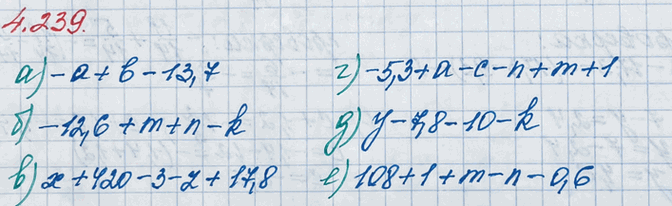 4.239.
а) -a + b - 13,7
г) -5,3 + a - c - n + m + 1
б) -12,6 + m + n - k
д) y - 7,8 - 10 - k
в) x + 420 - 3 - z + 17,8
е) 108 + 1 + m - n - 0,6